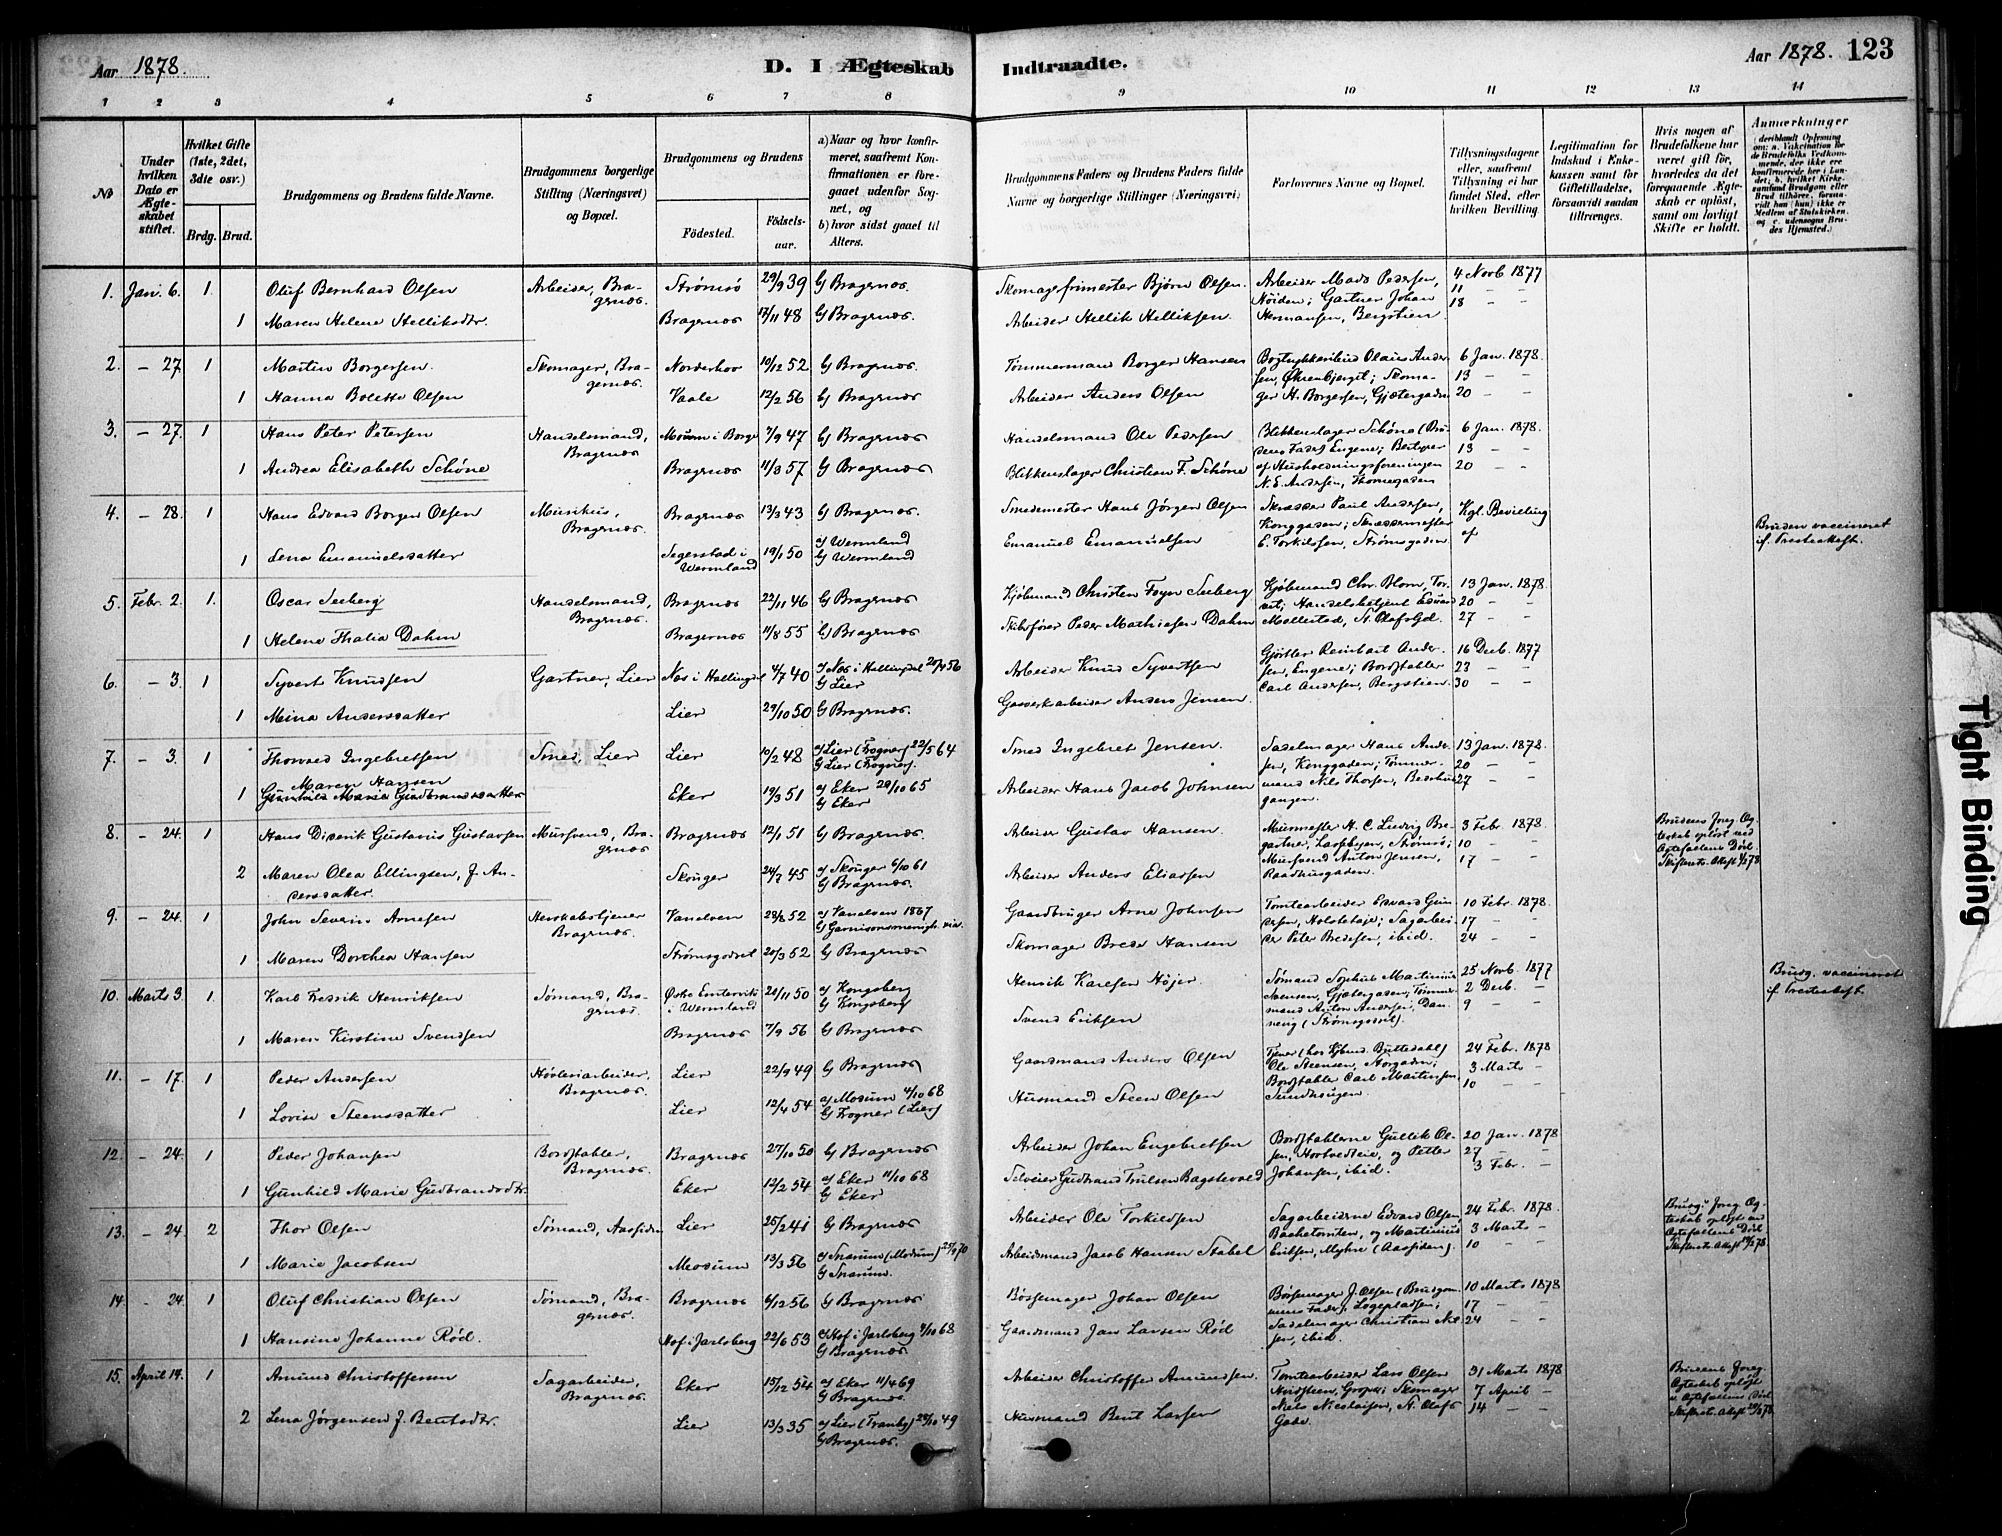 Aar 1878.
D. I Ægteskab Indtraadte.
Aar 1878. 123
1 2 3 4 5 6 7 8 9 10 11 12 13 14
No
Under hvilken Dato er Ægteskabet stiftet.
Hvilket Gifte (1ste, 2det, 3die osv.)
Brdg. Brud.
Brudgommens og Brudens fulde Navne.
Brudgommens borgerlige Stilling (Næringsvei) og Bopæl.
Brudgommens og Brudens
Fødested.
Fødselsaar.
a) Naar og hvor konfirmeret, saafremt Konfirmationen er foregaaet udenfor Sognet, og
b) hvor sidst gaaet til Alters.
Brudgommens Faders og Brudens Faders fulde Navne og borgerlige Stillinger (Næringsvei)
Forlovernes Navne og Bopæl.
Tillysningsdagene eller, saafremt Tillysning ei har fundet Sted, efter hvilken Bevilling.
Legitimation for Indskud i Enkekassen samt for Giftetilladelse, forsaavidt saadan tiltrænges.
Hvis nogen af Brudefolkene har været gift før, hvorledes da det foregaaende Ægteskab er opløst, samt om lovligt Skifte er holdt.
Anmærkninger
1. Jan. 6. 1. Oluf Bernhard Olsen Arbeider, Bragernæs. Strömsö 29/9 39 b) Bragernæs. Skomagersvend Bjørn Olsen. Arbeider Mads Pedersen, 4 Novb 1877
Höiden; Gartner Johan 11 — —
1 Maren Helene Helliksdtr. Bragernæs 17/11 48 b) Bragernæs. Arbeider Hellik Helliksen. Hermansen, Bergstien. 18 — —
2. — 27. 1 Martin Borgersen. Skomager, Bragernæs. Norderhov 10/12 52 b) Bragernæs. Tömmermand Borger Hansen 6 Jan. 1878.
13 — —
1 Hanna Bolette Olsen Vaale 12/2 56 b) Bragernæs Arbeider Anders Olsen Skomager H. Borgersen, Gjætergaden 20 — —
3. — 27. 1 Hans Peter Petersen Handelsmand, Bragernæs 7/9 47 b) Bragernæs Handelsmand Ole Pedersen Blikkenslager Schöne (Brudens Fader) Engene; Bestyrer 6 Jan. 1878.
13 — —
1 Andrea Elisabeth Schöne Bragernæs 11/8 57 b) Bragernæs Blikkenslager Christian F. Schöne af Husholdningsforeningen N. E. Andersen, Thornegaden 20 — —
4. — 28. 1 Hans Edvard Borger Olsen Musikus, Bragernæs. Bragernæs 13/3 43 b) Bragernæs. Smedemester Hans Jørgen Olsen Skrædder Paul Andersen, Konggaden; Skræddermester Kgl. Bevilling af
1 Lena Emanuelsdatter Segerstad i Wermland 19/1 50 a) Wermland b) Wermland Emanuel Emanuelsen E. Torkildsen, Strömsgaden Bruden vaccineret if. Presteattest.
5. Febr. 2. 1. Oscar Seeberg Handelsmand, Bragernæs. Bragernæs 22/11 46 b) Bragernæs Kjöbmand Christen Foyn Seeberg Kjöbmand Chr. Blom, Torvet; Handelsbetjent Edvard 13 Jan. 1878.
20 — —
1 Helene Thalia Dahm Bragernæs 11/8 55 b) Bragernæs Skibsfører Peder Mathiesen Dahm Mollestad, St. Olafs Gd. 27 — —
6. — 3. 1 Syvert Knudsen Gartner, Lier Næs i Hallingdal 4/7 40 a) Næs i Hallingdal 20/4 56 b) Lier Arbeider Knud Syvertsen Gjörtler Reinhart Andersen, Engene; Bordstabler 16 Decb. 1877
23 — —
1 Meina Andersdatter Lier 29/10 50 b) Bragernæs. Gasverksarbeider Anders Jensen. Carl Andersen, Bergstien. 30 — —
7. — 3. 1 Thorvald Ingebretsen Smed, Lier Lier 10/2 48 a) Lier (Frogner) 22/5 64 b) Lier (Frogner). Smed Ingebret Jensen. Sadelmager Hans Andersen, Konggaden; Tömmermand Nils Thorsen, 13 Jan. 1878.
20 — —
Maren Hansen
1 Gunhild Marie Gudbrandsdatter Eker 19/3 51 a) Eker 29/10 65 b) Eker Arbeider Hans Jacob Johnsen 27 — —
8. — 24. 1 Hans Diderik Gustavus Gustavsen Mursvend, Bragernæs Bragernæs 12/1 51 b) Bragernæs. Arbeider Gustav Hansen. Murmester H. C. Ludvig Bregartner, Landfaldøen, Strömsö; 3 Febr. 1878.
10 — — Brudens foreg. Ægteskab opløst ved Ægtefællens Död.
2 Maren Olea Ellingsen, f. Andersdatter. Skouger 24/7 45 a) Skouger 6/10 61 b) Bragernæs. Arbeider Anders Eliassen Mursvend Anton Jensen, Raadhusgaden. 17 — —
9. — 24. 1 John Severin Arnesen Herskabstjener Bragernæs. Vanelven 28/8 52 a) Vanelven 1867 b) Garnisonsmenigh. Xia. Gaardbruger Arne Johnsen Tomtearbeider Edvard Gundersen, 10 Febr. 1878.
17 — —
1 Maren Dorthea Hansen Strömsgodset 20/3 52 b) Bragernæs Skomager Brede Hansen Sagarbeider Peter Bredesen, ibid. 24 — —
10. Marts 3. 1. Karl Fredrik Henriksen Sömand, Bragernæs. Östre Emtervik i Wermland 20/11 50 a) Kongsberg b) Kongsberg Henrik Karlsen Höjer Sömand Sophus Martinius Svensen, Gjætergaden; 25 Novb. 1877
2 Decb. — Brudg. vaccineret if. Presteattest.
1 Maren Kirstine Svendsen Bragernæs 7/9 56 b) Bragernæs Svend Eriksen Tömmermand Anton Andersen, Danneng (Strömsgodset). 9 — —
11. — 17. 1 Peder Andersen Hövleriarbeider, Bragernæs. Lier 22/9 49 b) Bragernæs Gaardmand Anders Olsen Tjener (hos Kjbmd. Buttedahl) Ole Steensen, Storgaden; 24 Febr. 1878
3 Marts —
1 Lovise Steensdatter Lier 12/4 54 a) Modum 4/10 68 b) Frogner (Lier) Husmand Steen Olsen Bordstabler Carl Martinsen, Sundhaugen. 10 — —
12. — 24. 1 Peder Johansen Bordstabler, Bragernæs. Bragernæs 27/10 50 b) Bragernæs Arbeider Johan Engebretsen Bordstablerne Gullik Olsen, 20 Jan. 1878
27 — —
1 Gunhild Marie Gudbrandsdtr. Eker 12/2 54 a) Eker 11/10 68 b) Eker Selveier Gudbrand Trulsen Bagstevold og Petter Johansen, ibid. 3 Febr. —
13. — 24. 2 Thor Olsen Sömand, Aassiden Lier 25/2 41 b) Bragernæs Arbeider Ole Torkildsen Sagarbeiderne Edvard Olsen, 24 Febr. 1878
Bachetomten, og Martinius 3 Marts — Brudg.s foreg. Ægteskab opløst ved Ægtefællens Död.
1 Marie Jacobsen Modum 13/3 56 a) Snarum (Modum) 25/9 70 b) Snarum. Arbeidsmand Jacob Hansen Stabel Eriksen, Myhre (Aassiden). 10 — —
14. — 24. 1 Oluf Christian Olsen Sömand, Bragernæs. Bragernæs 6/12 56 b) Bragernæs Börsemager Johan Olsen Börsemager J. Olsen (Brudgommens Fader), Logepladsen; 10 Marts 1878
17 — —
1 Hansine Johanne Röd. Hof i Jarlsberg 22/6 53 a) Hof i Jarlsberg 4/10 68 b) Bragernæs. Gaardmand Jan Larsen Röd Sadelmager Christian Nilsen, ibid. 24 — —
15. April 14. 1 Amund Christoffersen Sagarbeider, Bragernæs. Eker 15/12 54 a) Eker 11/4 69 b) Bragernæs. Arbeider Christoffer Amundsen. Tomtearbeider Lars Olsen 31 Marts 1878
Skomager 7 April — Brudens foreg. Ægteskab opløst v. Ægtefællens Död
2 Lena Jørgensen f. Bentsdtr. Lier 13/3 35 a) Lier (Tranby) 29/10 49 b) Bragernæs. Husmand Bent Larsen Niels Nicolaisen, St. Olafs Gade. 14 — —
Tight Binding